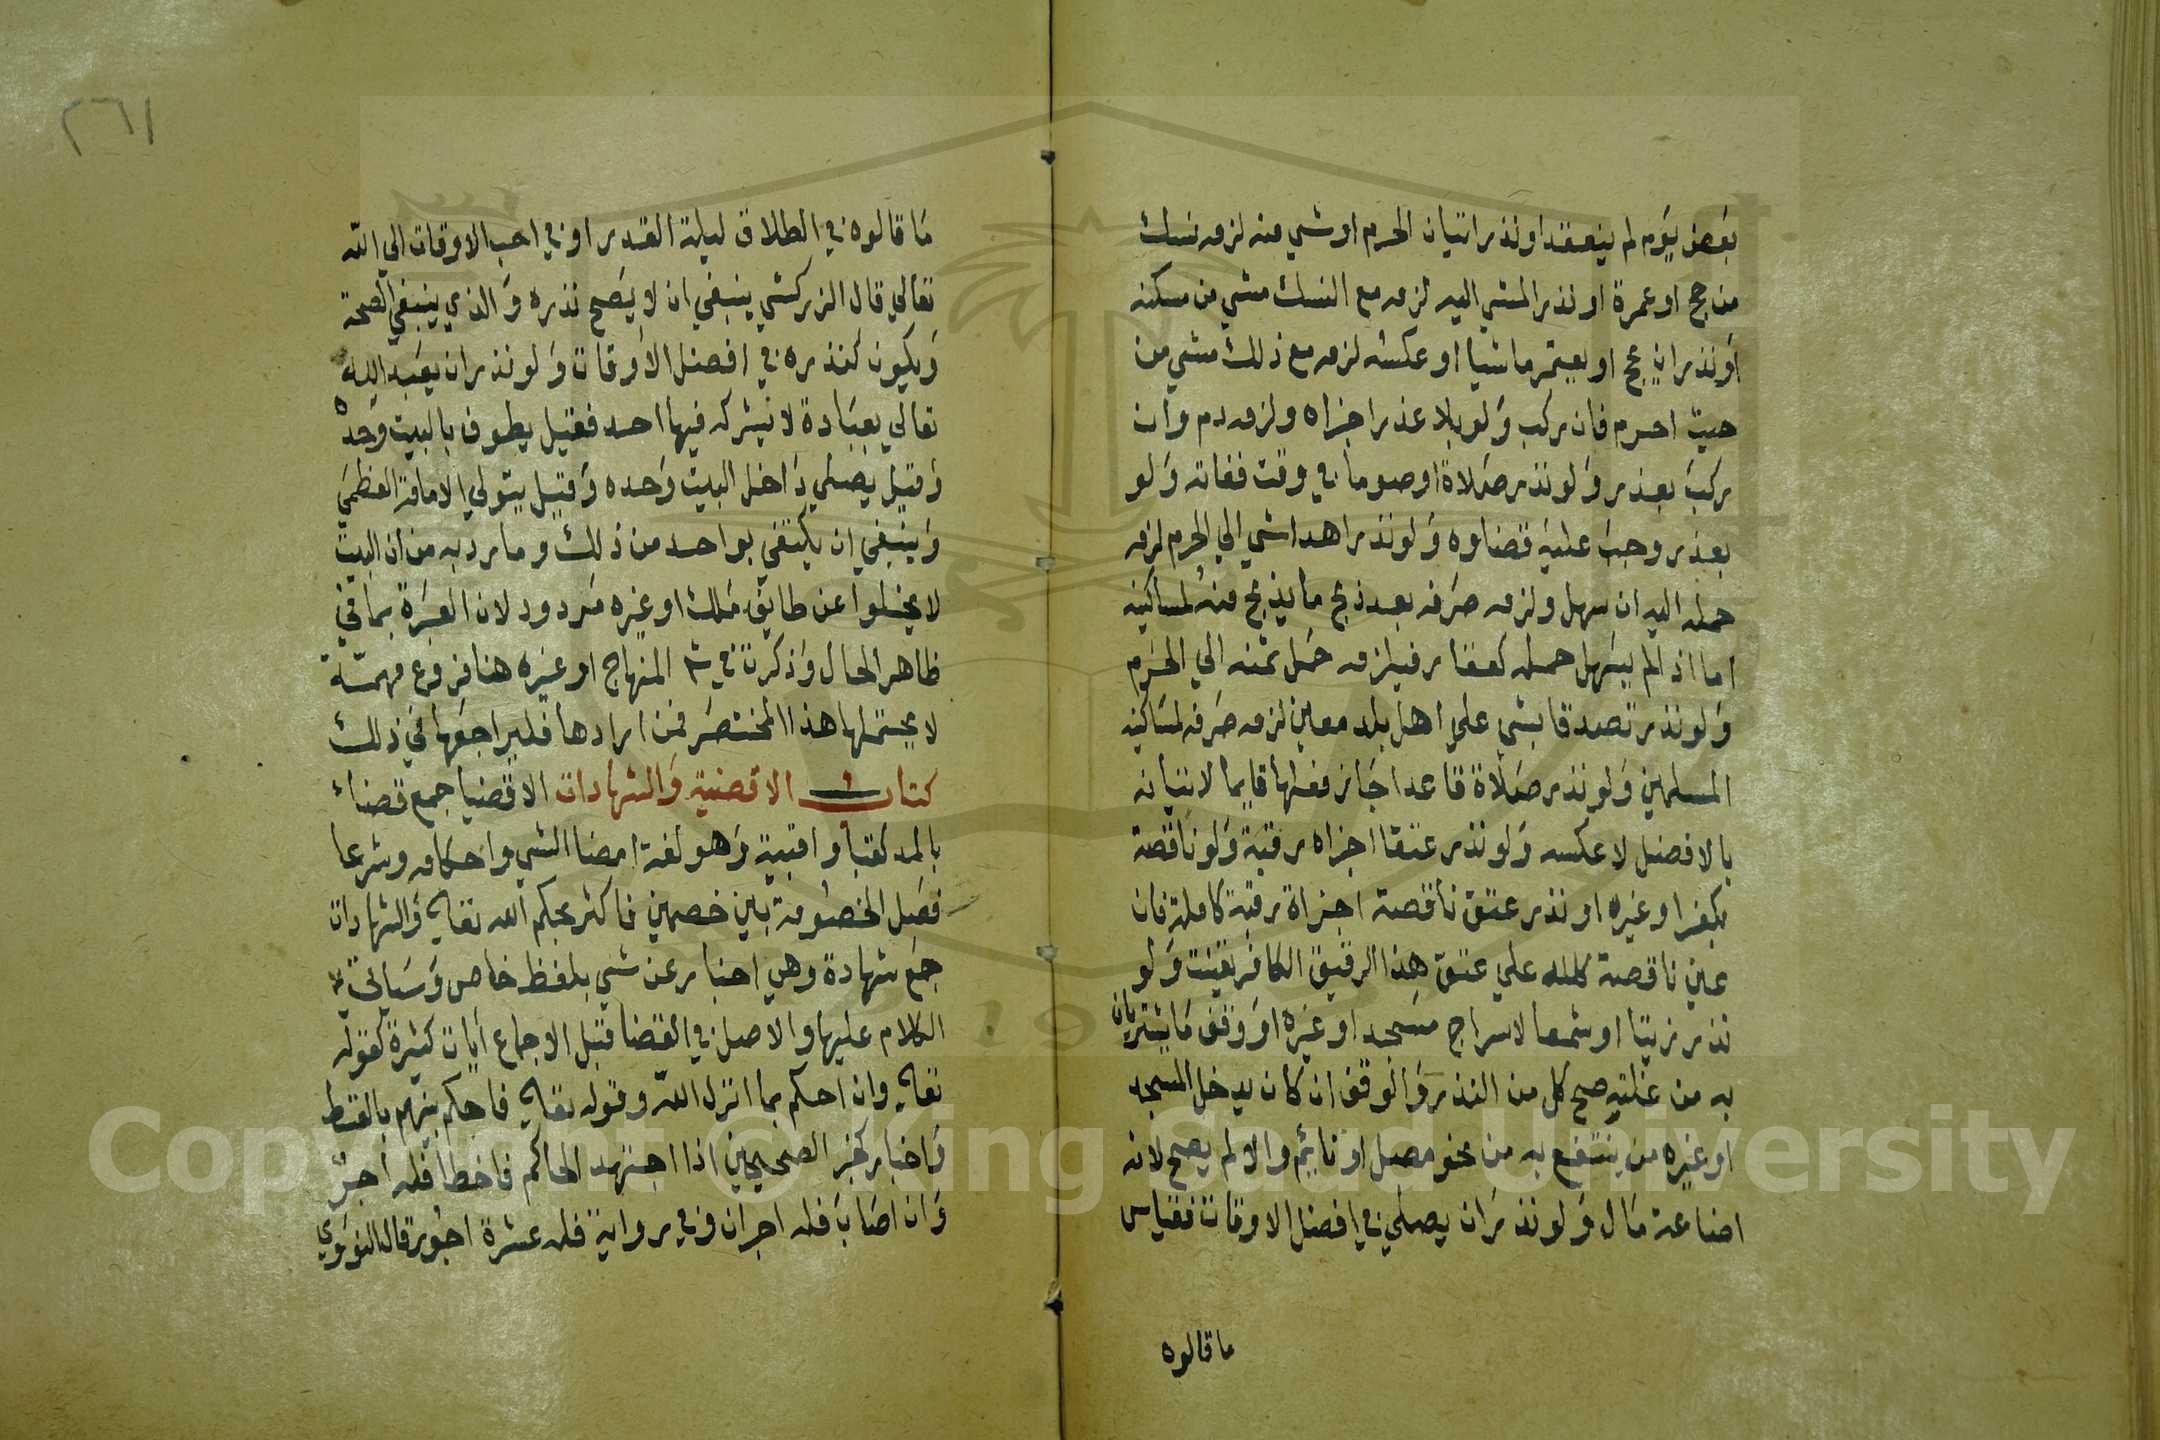 بعض يوم لم ينعقد او نذر اتيان الحرم او شي منه لزمه نسك
من حج او عمرة او نذر المشي اليه لزمه مع النسك مشي من مسكنه
او نذر ان يحج او يعتمر ماشيا او عكسه لزمه مع ذلك مشي من
حيث احرم فان ركب ولو بلا عذر اجزاه ولزمه دم وان
ركب بعذر ولو نذر صلاة او صوما في وقت ففاته ولو
بعذر وجب عليه قضاوه ولو نذر اهدا شي الي الحرم لزمه
حمله اليه ان سهل ولزمه صرفه بعد ذبح ما يذبح منه لمساكينه
اما اذا لم يسهل حمله كعقار فيلزمه حمل ثمنه الي الحرم
ولو نذر تصدقا بشي علي اهل بلد معين لزمه صرفه لمساكينه
المسلمين ولو نذر صلاة قاعدا جاز فعلها قايما لاتيانه
بالافضل لا عكسه ولو نذر عتقا اجزاه رقبة ولو ناقصة
بكفر او غيره او نذر عتق ناقصة اجزاة رقبة كاملة فان
عين ناقصة كلله علي عتق هذا الرقيق الكافر تعينت ولو
نذر زيتا او شمعا لاسراج مسجد او غيره او وقف ما يشتريان
به من غلته صح كل من النذر والوقف ان كان يدخل المسجد
او غيره من ينتفع به من نحو مصل او نايم والا لم يصح لانه
اضاعة مال ولو نذر ان يصلي في افضل الاوقات فقياس
ما قالوه
٢٦١
ما قالوه في الطلاق ليلة القدر او في احب الاوقات الي الله
تعالي قال الزركشي ينبغي ان لا يصح نذره والذي ينبغي الصحة
ويكون كنذره في افضل الاوقات ولو نذر ان يعبد الله
تعالي بعبادة لا يشركه فيها احد فقيل يطوف بالبيت وحده
وقيل يصلي داخل البيت وحده وقيل يتولي الامامة العظمي
وينبغي ان يكتفي بواحد من ذلك وما رد به من ان البيت
لا يخلوا عن طايف ملك او غيره مردود لان العبرة بما في
ظاهر الحال وذكرت في شر المنهاج او غيره هنا فروع مهمة
لا يحتملها هذا المختصر فمن ارادها فليراجعها في ذلك
كتاب الاقضية والشهادات الاقضيا جمع قضاء
بالمد كقبا واقبية وهو لغة امضا الشي واحكامه وشرعا
فصل الخصومة بين خصمين فاكثر بحكم الله تعالي والشهادات
جمع شهادة وهي اخبار عن شي بلفظ خاص وسياتي
الكلام عليها والاصل في القضا قبل الاجماع آيات كثيرة كقوله
تعالي وان احكم بما انزل الله وقوله تعالي فاحكم بينهم بالقسط
واخبار كخبر الصحيحين اذا اجتهد الحاكم فاخطا فله اجر
وان اصاب فله اجران وفي رواية فله عشرة اجور قال النووي
Copyright © King Saud University